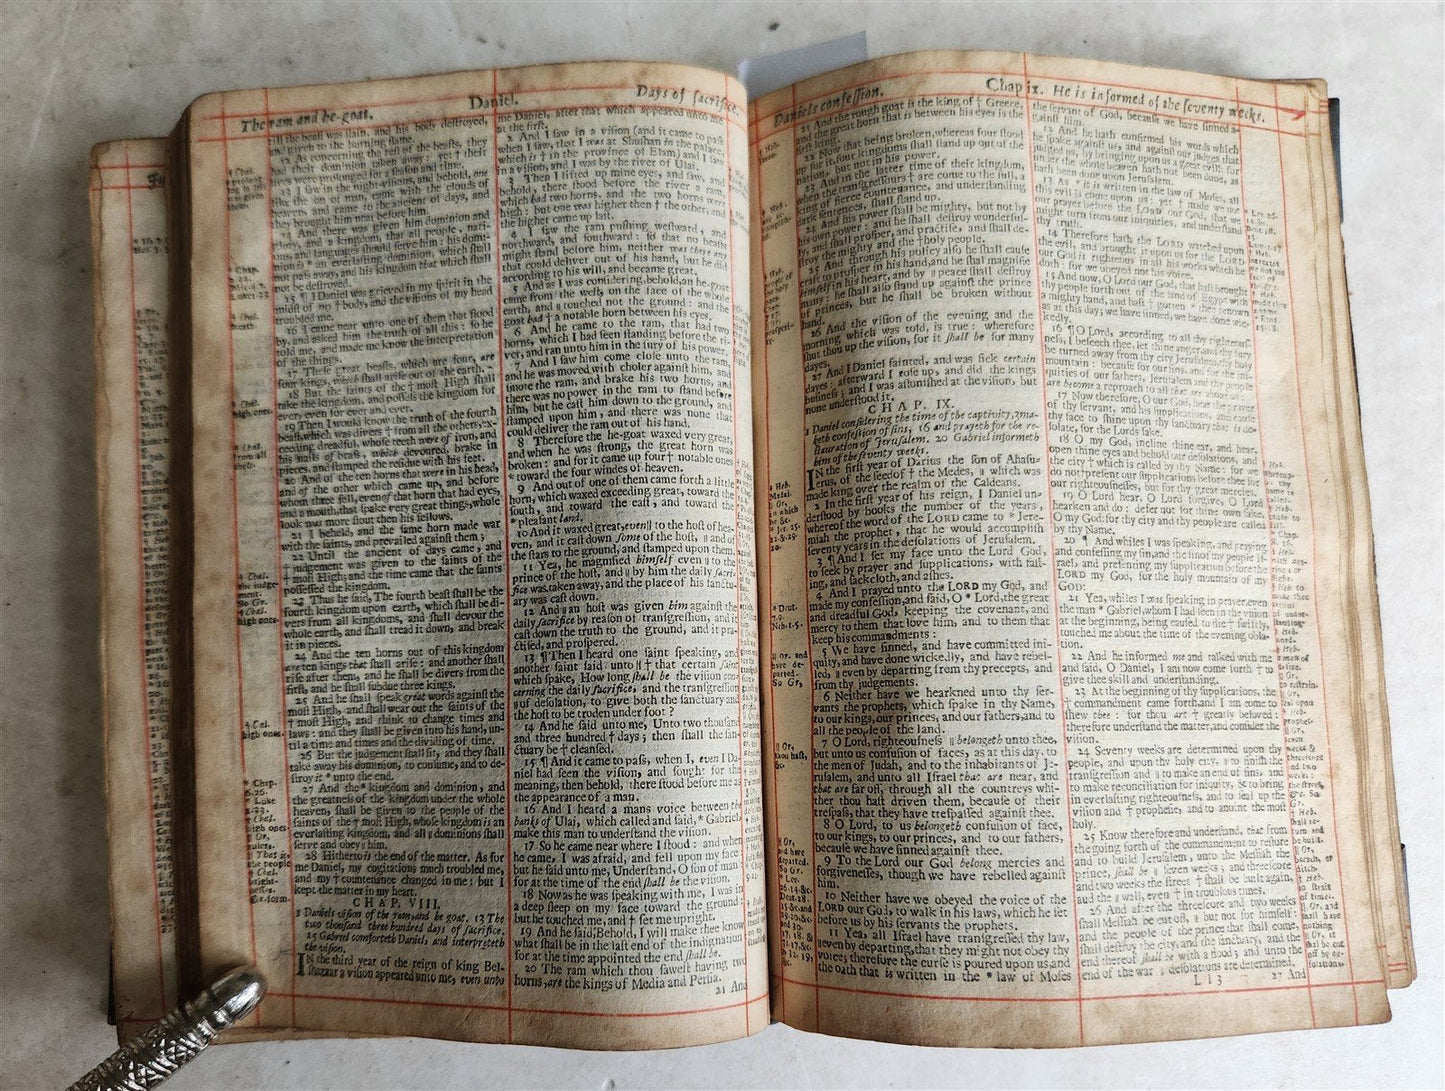 The ram and he-goat.
Daniel.
Days of ſacrifice.
till the beaſt was ſlain, and his body deſtroyed,
and given to the burning flame.
12 As concerning the reſt of the beaſts, they
had their dominion taken away: yet † their
lives were prolonged for a ſeaſon and time.
13 I ſaw in the night-viſions, and behold, one
like the ſon of man, came with the clouds of
heaven, and came to the ancient of days, and
they brought him near before him.
14 And there was given him dominion and
glory, and a kingdom, that all people, nati-
ons, and languages ſhould ſerve him: his domi-
nion is * an everlaſting dominion, which ſhall
not paſs away, and his kingdom that which ſhall
not be deſtroyed.
15 ¶ I Daniel was grieved in my ſpirit in the
midſt of my † body, and the viſions of my head
troubled me.
16 I came near unto one of them that ſtood
by, and asked him the truth of all this: ſo he
told me, and made me know the interpretation
of the things.
17 Theſe great beaſts, which are four, are
four kings, which ſhall ariſe out of the earth.
18 But the ſaints of the † moſt High ſhall
take the kingdom, and poſſeſs the kingdom for
ever, even for ever and ever.
19 Then I would know the truth of the fourth
beaſt, which was divers † from all the others, ex-
ceeding dreadful, whoſe teeth were of iron, and
his nails of braſs, which devoured, brake in
pieces, and ſtamped the reſidue with his feet.
20 And of the ten horns that were in his head,
and of the other which came up, and before
whom three fell, even of that horn that had eyes,
and a mouth, that ſpake very great things, whoſe
look was more ſtout then his fellows.
21 I beheld, and the ſame horn made war
with the ſaints, and prevailed againſt them;
22 Until the ancient of days came, and
† judgement was given to the ſaints of the
† moſt High; and the time came that the ſaints
poſſeſſed the kingdom.
23 Thus he ſaid, The fourth beaſt ſhall be the
fourth kingdom upon earth, which ſhall be di-
vers from all kingdoms, and ſhall devour the
whole earth, and ſhall tread it down, and break
it in pieces.
24 And the ten horns out of this kingdom
are ten kings that ſhall ariſe: and another ſhall
riſe after them, and he ſhall be divers from the
firſt, and he ſhall ſubdue three kings.
25 And he ſhall ſpeak great words againſt the
moſt High, and ſhall wear out the ſaints of the
† moſt High, and think to change times and
laws: and they ſhall be given into his hand, un-
til a time and times and the dividing of time.
26 But the judgement ſhall ſit, and they ſhall
take away his dominion, to conſume, and to de-
ſtroy it * unto the end.
27 And the * kingdom and dominion, and
the greatneſs of the kingdom under the whole
heaven, ſhall be given to the people of the
ſaints of the † moſt High, whoſe kingdom is an
everlaſting kingdom, and all ‖ dominions ſhall
ſerve and obey him.
28 Hitherto is the end of the matter. As for
me Daniel, my cogitations much troubled me,
and my † countenance changed in me: but I
kept the matter in my heart.
CHAP. VIII.
1 Daniels viſion of the ram, and he goat. 13 The
two thouſand three hundred days of ſacrifice.
15 Gabriel comforteth Daniel, and interpreteth
the viſion.
IN the third year of the reign of king Bel-
ſhazzar a viſion appeared unto me, even unto
me Daniel, after that which appeared unto me
at the firſt.
2 And I ſaw in a viſion (and it came to paſs
when I ſaw, that I was at Shuſhan in the palace,
which is † in the province of Elam) and I ſaw
in a viſion, and I was by the river of Ulai.
3 Then I lifted up mine eyes, and ſaw, and
behold, there ſtood before the river a ram,
which had two horns, and the two horns were
high: but one was higher then † the other, and
the higher came up laſt.
4 I ſaw the ram puſhing weſtward, and
northward, and ſouthward: ſo that no beaſts
might ſtand before him, neither was there any
that could deliver out of his hand, but he did
according to his will, and became great.
5 And as I was conſidering, behold, an he-goat
came from the weſt, on the face of the whole
earth, and ‖ touched not the ground: and the
goat had † a notable horn between his eyes.
6 And he came to the ram, that had two
horns, which I had ſeen ſtanding before the ri-
ver, and ran unto him in the fury of his power.
7 And I ſaw him come cloſe unto the ram,
and he was moved with choler againſt him, and
ſmote the ram, and brake his two horns, and
there was no power in the ram to ſtand before
him, but he caſt him down to the ground, and
ſtamped upon him, and there was none that
could deliver the ram out of his hand.
8 Therefore the he-goat waxed very great,
and when he was ſtrong, the great horn was
broken: and for it came up four † notable ones
* toward the four windes of heaven.
9 And out of one of them came forth a little
horn, which waxed exceeding great, toward the
ſouth, and toward the eaſt, and toward the
* pleaſant land.
10 And it waxed great, even ‖ to the hoſt of hea-
ven, and it caſt down ſome of the hoſt, ‖ and of
the ſtars to the ground, and ſtamped upon them.
11 Yea, he magnified himſelf even ‖ to the
prince of the hoſt, and ‖ by him the daily ſacri-
fice was taken away, and the place of his ſanctu-
ary was caſt down.
12 And ‖ an hoſt was given him againſt the
daily ſacrifice by reaſon of tranſgreſſion, and it
caſt down the truth to the ground, and it pra-
ctiſed, and proſpered.
13 ¶ Then I heard one ſaint ſpeaking, and
another ſaint ſaid unto ‖ † that certain ſaint
which ſpake, How long ſhall be the viſion con-
cerning the daily ſacrifice, and the tranſgreſſion
‖ of deſolation, to give both the ſanctuary and
the hoſt to be troden under foot?
14 And he ſaid unto me, Unto two thouſand
and three hundred † days; then ſhall the ſan-
ctuary be † cleanſed.
15 ¶ And it came to paſs, when I, even I Da-
niel had ſeen the viſion, and ſought for the
meaning, then behold, there ſtood before me as
the appearance of a man.
16 And I heard a mans voice between the
banks of Ulai, which called and ſaid, * Gabriel,
make this man to underſtand the viſion.
17 So he came near where I ſtood: and when
he came, I was afraid, and fell upon my face:
but he ſaid unto me, Underſtand, O ſon of man:
for at the time of the end ſhall be the viſion.
18 Now as he was ſpeaking with me, I was in
a deep ſleep on my face toward the ground:
but he touched me, and † ſet me upright.
19 And he ſaid, Behold, I will make thee know
what ſhall be in the laſt end of the indignation
for at the time appointed the end ſhall be.
20 The ram which thou ſaweſt having two
horns, are the kings of Media and Perſia.
21 And
Daniels confeſſion.
Chap ix.
He is informed of the ſeventy weeks.
21 And the rough goat is the king of † Greece,
and the great horn that is between his eyes is the
firſt king.
22 Now that being broken, whereas four ſtood
up for it, four kingdoms ſhall ſtand up out of the
nation, but not in his power.
23 And in the latter time of their kingdom,
when the tranſgreſſours † are come to the full, a
king of fierce countenance, and underſtanding
dark ſentences, ſhall ſtand up.
24 And his power ſhall be mighty, but not by
his own power: and he ſhall deſtroy wonderful-
ly, and ſhall proſper, and practiſe, and ſhall de-
ſtroy the mighty and the † holy people.
25 And through his policy alſo he ſhall cauſe
craft to proſper in his hand, and he ſhall magnifie
himſelf in his heart, and by ‖ peace ſhall deſtroy
many: he ſhall alſo ſtand up againſt the prince
of princes, but he ſhall be broken without
hand.
26 And the viſion of the evening and the
morning which was told, is true: wherefore
ſhut thou up the viſion, for it ſhall be for many
dayes.
27 And I Daniel fainted, and was ſick certain
dayes; afterward I roſe up, and did the kings
buſineſs; and I was aſtoniſhed at the viſion, but
none underſtood it.
CHAP. IX.
1 Daniel conſidering the time of the captivity, 3 ma-
keth confeſſion of ſins, 16 and prayeth for the re-
ſtauration of Jeruſalem. 20 Gabriel informeth
him of the ſeventy weeks.
IN the firſt year of Darius the ſon of Ahaſu-
erus, of the ſeed of † the Medes, ‖ which was
made king over the realm of the Caldeans.
2 In the firſt year of his reign, I Daniel un-
derſtood by books the number of the years,
whereof the word of the LORD came to * Jere-
miah the prophet, that he would accompliſh
ſeventy years in the deſolations of Jeruſalem.
3 ¶ And I ſet my face unto the Lord God,
to ſeek by prayer and ſupplications, with faſt-
ing, and ſackcloth, and aſhes.
4 And I prayed unto the LORD my God, and
made my confeſſion, and ſaid, O * Lord, the great
and dreadful God, keeping the covenant, and
mercy to them that love him, and to them that
keep his commandments:
5 We have ſinned, and have committed ini-
quity, and have done wickedly, and have rebel-
led, ‖ even by departing from thy precepts, and
from thy judgements.
6 Neither have we hearkned unto thy ſer-
vants the prophets, which ſpake in thy Name,
to our kings, our princes, and our fathers, and to
all the people of the land.
7 O Lord, righteouſneſs ‖ belongeth unto thee,
but unto us confuſion of faces, as at this day, to
the men of Judah, and to the inhabitants of Je-
ruſalem, and unto all Iſrael that are near, and
that are far off, through all the countreys whi-
ther thou haſt driven them, becauſe of their
treſpaſs, that they have treſpaſſed againſt thee.
8 O Lord, to us belongeth confuſion of face,
to our kings, to our princes, and to our fathers,
becauſe we have ſinned againſt thee.
9 To the Lord our God belong mercies and
forgiveneſſes, though we have rebelled againſt
him.
10 Neither have we obeyed the voice of the
LORD our God, to walk in his laws, which he ſet
before us by his ſervants the prophets.
11 Yea, all Iſrael have tranſgreſſed thy law,
‖ even by departing, that they might not obey thy
voice; therefore the curſe is poured upon us, and
the oath that is written in the * law of Moſes
the ſervant of God, becauſe we have ſinned a-
gainſt him.
12 And he hath confirmed his words which
he ſpake againſt us, and againſt our judges that
judged us, by bringing upon us a great evil: for
under the whole heaven hath not been done, as
hath been done upon Jeruſalem.
13 As * it is written in the law of Moſes, all
this evil is come upon us: yet † made we not
our prayer before the LORD our God, that we
might turn from our iniquities, and underſtand
thy truth.
14 Therefore hath the LORD watched upon
the evil, and brought it upon us: for the LORD
our God is righteous in all his works which he
doth: for we obeyed not his voice.
15 And now, O Lord our God, that haſt brought
thy people forth out of the land of Egypt with
a mighty hand, and haſt † gotten * thee renown
as at this day; we have ſinned, we have done wic-
kedly.
16 ¶ O Lord, according to all thy righteouſ-
neſs, I beſeech thee, let thine anger and thy fury
be turned away from thy city Jeruſalem, thy holy
mountain: becauſe for our ſins, and for the ini-
quities of our fathers, Jeruſalem and thy people
are become a reproach to all that are about us.
17 Now therefore, O our God, hear the prayer
of thy ſervant, and his ſupplications, and cauſe
thy face to ſhine upon thy ſanctuary that is de-
ſolate, for the Lords ſake.
18 O my God, incline thine ear, and hear,
open thine eyes and behold our deſolations, and
the city † which is called by thy Name: for we
do not † preſent our ſupplications before thee for
our righteouſneſſes, but for thy great mercies.
19 O Lord hear, O Lord forgive, O Lord
hearken and do: defer not for thine own ſake,
O my God: for thy city and thy people are called
by thy Name.
20 ¶ And whiles I was ſpeaking, and praying,
and confeſſing my ſin, and the ſin of my people Iſ-
rael, and preſenting my ſupplication before the
LORD my God, for the holy mountain of my
GOD:
21 Yea, whiles I was ſpeaking in prayer, even
the man * Gabriel, whom I had ſeen in the viſion
at the beginning, being cauſed to flie † ſwiftly,
touched me about the time of the evening obla-
tion.
22 And he informed me and talked with me
and ſaid, O Daniel, I am now come forth † to
give thee skill and underſtanding.
23 At the beginning of thy ſupplications, the
† commandment came forth, and I am come to
ſhew thee: for thou art † greatly beloved:
therefore underſtand the matter, and conſider the
viſion.
24 Seventy weeks are determined upon thy
people, and upon thy holy city, ‖ to finiſh the
tranſgreſſion and ‖ to make an end of ſins, and
to make reconciliation for iniquity, & to bring
in everlaſting righteouſneſs, and to ſeal up the
viſion and † propheſie, and to anoint the moſt
holy.
25 Know therefore and underſtand, that from
the going forth of the commandment to reſtore
and to build Jeruſalem, unto the Meſſiah the
prince, ſhall be ‖ ſeven weeks; and threeſcore
and two weeks the ſtreet † ſhall be built again,
and the ‖ wall, even † in troublous times.
26 And after the threeſcore and two weeks
ſhall Meſſiah be cut off, ‖ but not for himſelf:
and the people of the prince that ſhall come,
ſhall deſtroy the city, and the ſanctuary, and the
end thereof ſhall be with a flood; and unto the
end of the war ‖ deſolations are determined.
L l 3
27 And